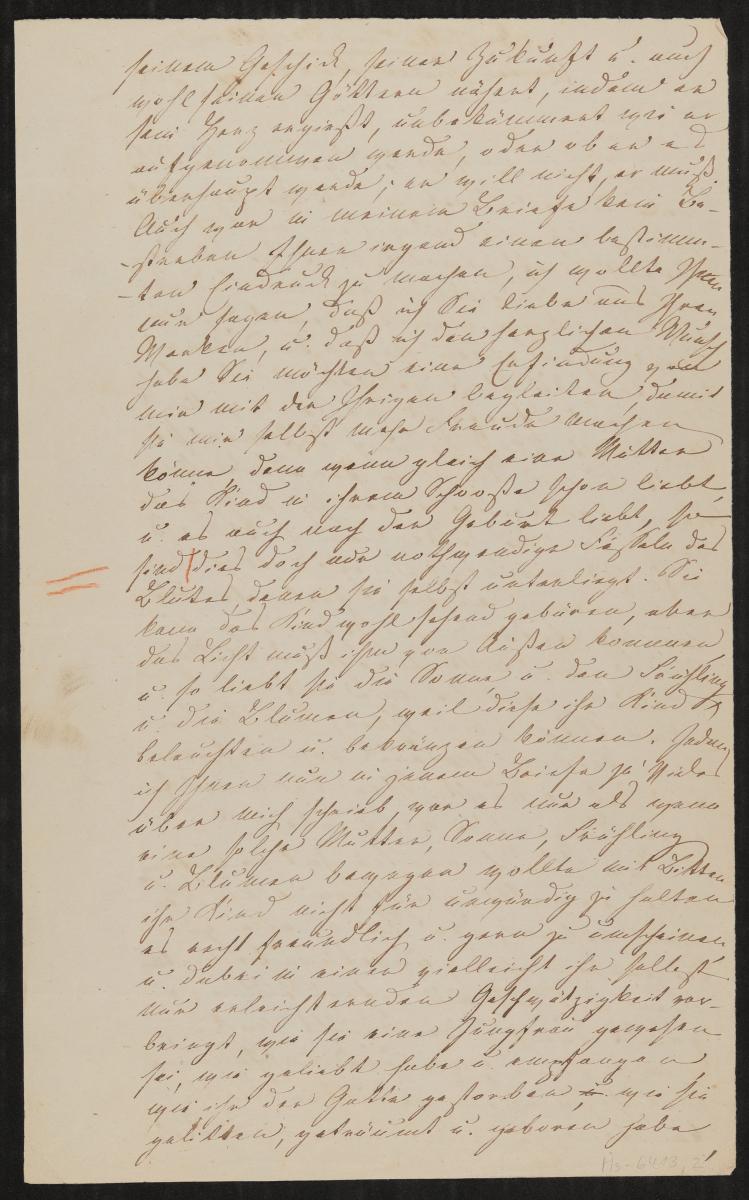 seinem Geschick, seiner Zukunft u. auch
wohl seinen Göttern nähert, indem er
sein Herz ergießt, unbekümmert wie er
aufgenommen werde, oder ob er es
überhaupt werde; er will nicht, er muß.
Auch war in meinem Briefe kein Be-
-streben Ihnen irgend einen bestimm-
-ten Eindruck zu machen, ich wollte Ihnen
nur sagen, daß ich Sie liebe aus Ihren
Werken, u. daß ich den herzlichen Wunsch
habe Sie möchten eine Erfindung von
mir mit der Ihrigen begleiten, damit
sie mir selbst mehr Freude machen
könne, denn wenn gleich eine Mutter
das Kind in ihrem Schooße schon liebt,
u. es auch nach der Geburt liebt, so
sind dies doch nur nothwendige Fesseln des
Blutes denen sie selbst unterliegt. Sie
kann das Kind wohl sehend gebären, aber
das Licht muß ihm von Außen kommen,
u. so liebt sie die Sonne u. den Frühling
u. die Blumen, weil diese ihr Kind
beleuchten u. bekränzen können. Indem
ich Ihnen nun in jenem Briefe so Vieles
über mich schrieb, war es nur als wenn
eine solche Mutter, Sonne, Frühling
u. Blumen bewegen wollte mit Bitten
ihr Kind nicht für unwürdig zu halten
es recht freundlich u. gern zu umscheinen,
u. dabei in einer vielleicht ihr selbst
nur erleichternden Geschwätzigkeit vor-
bringt, wie sie eine Jungfrau gewesen
sei, wie geliebt habe u. empfangen,
wie ihr der Gatte gestorben u. wie sie
gelitten, geträumt u. geboren habe
Hs-6413, 2'